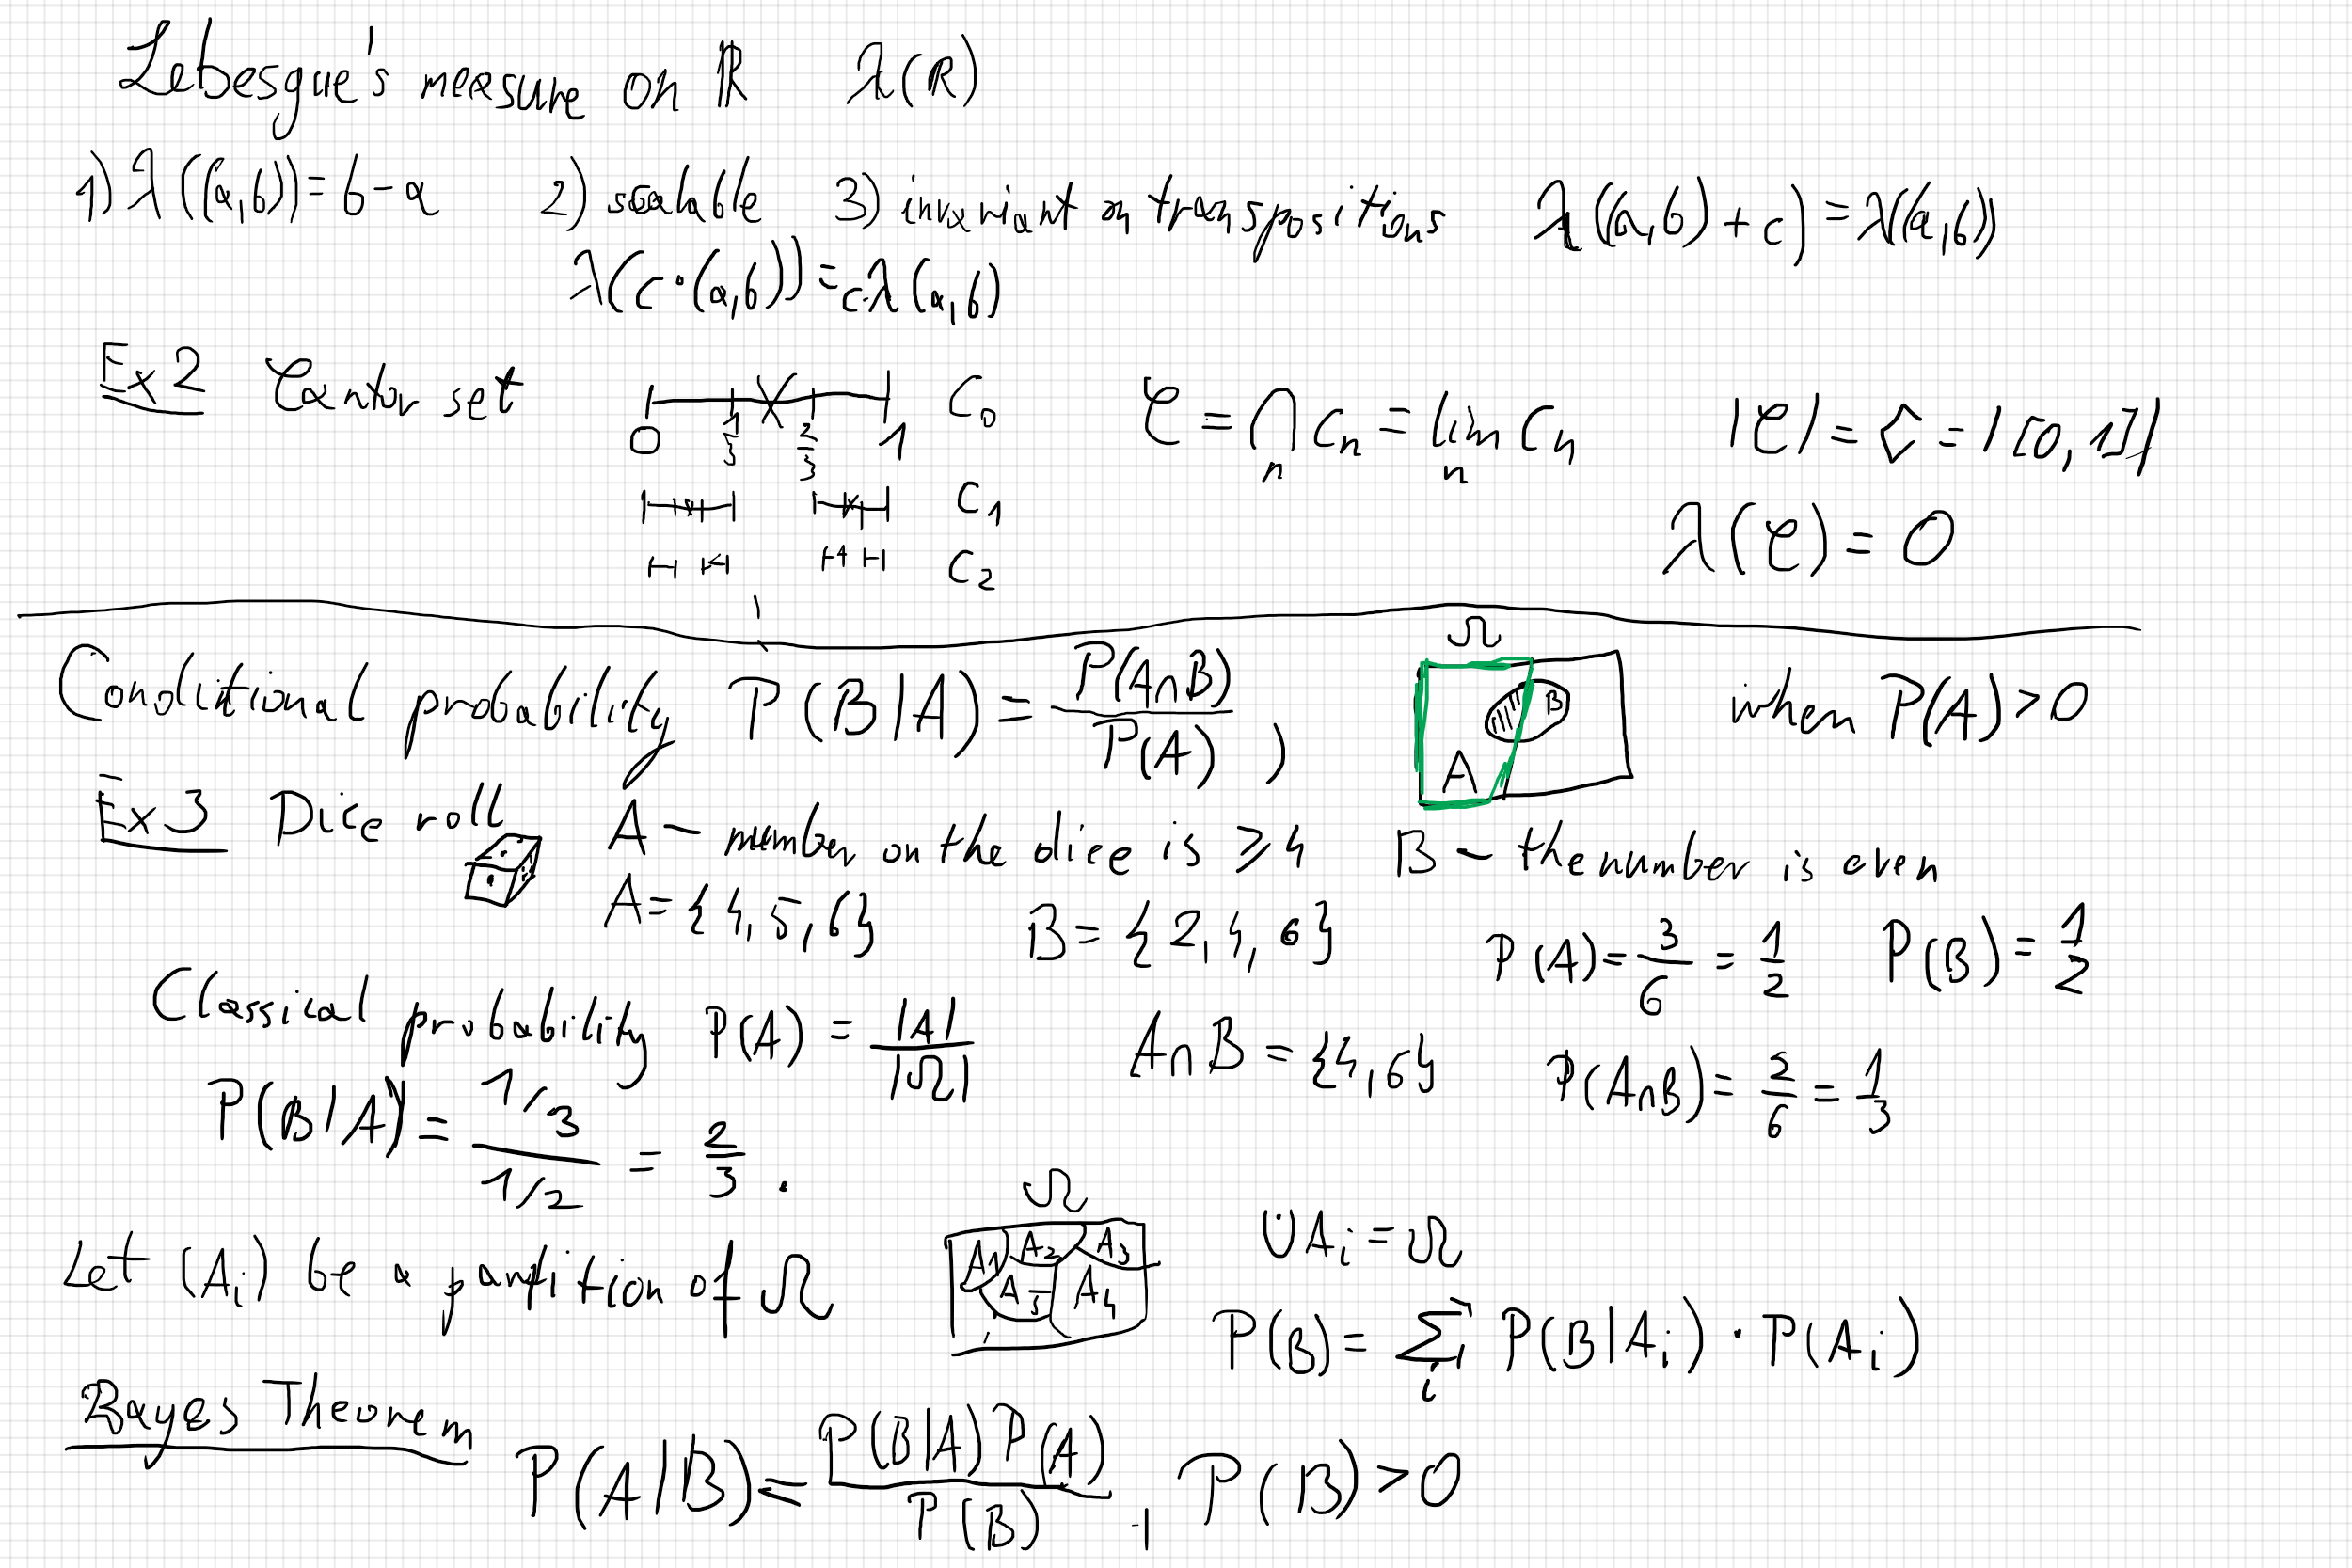 Lebesgue's measure on ℝ λ(R)
1) λ((a,b)) = b-a 2) scalable 3) invariant on transpositions λ((a,b)+c) = λ((a,b))
λ(c·(a,b)) = c·λ(a,b)
Ex2 Cantor set C₀ 𝒞 = ⋂ₙ Cₙ = limₙ Cₙ |𝒞| = ℭ = |[0,1]|
0 1/3 2/3 1
C₁ λ(𝒞) = 0
C₂
Ω
Conditional probability P(B|A) = P(A∩B)/P(A) , A B when P(A)>0
Ex3 Dice roll A – number on the dice is ≥4 B – the number is even
A = {4,5,6} B = {2,4,6} P(A) = 3/6 = 1/2 P(B) = 1/2
Classical probability P(A) = |A|/|Ω| A∩B = {4,6} P(A∩B) = 2/6 = 1/3
P(B|A) = (1/3)/(1/2) = 2/3 .
Ω
Let (Aᵢ) be a partition of Ω A₁ A₂ A₃ A₅ A₄ ∪Aᵢ = Ω
P(B) = Σᵢ P(B|Aᵢ) · P(Aᵢ)
Bayes Theorem P(A|B) = P(B|A)P(A)/P(B) , P(B)>0